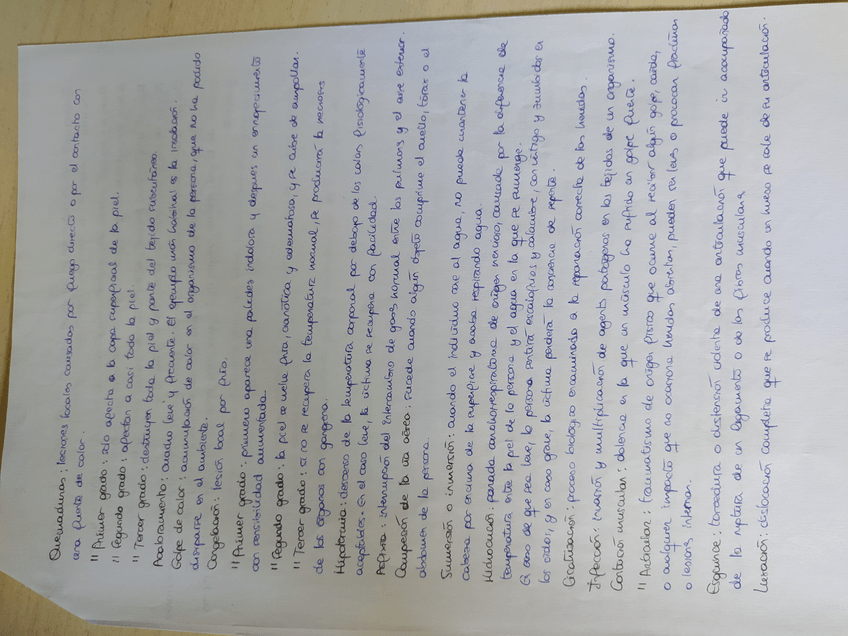 Quemaduras: lesiones locales causadas por fuego directo o por el contacto con
una fuente de calor.
" Primer grado: solo afecta a la capa superficial de la piel.
" Segundo grado: afectan a casi toda la piel.
" Tercer grado: destruyen toda la piel y parte del tejido subcutáneo.
Acaloramiento: cuadro leve y frecuente. El ejemplo más habitual es la insolación.
Golpe de calor: acumulación de calor en el organismo de la persona, que no ha podido
disiparse en el ambiente.
Congelación: lesión local por frío.
" Primer grado: primero aparece una palidez indolora y después un enrojecimiento
con sensibilidad aumentada.
" Segundo grado: la piel se vuelve fría, cianótica y edematosa, y se cubre de ampollas.
" Tercer grado: si no se recupera la temperatura normal, se producirá la necrosis
de los órganos con gangrena.
Hipotermia: descenso de la temperatura corporal por debajo de los valores fisiológicamente
aceptables. En el caso leve, la víctima se recupera con facilidad.
Asfixia: interrupción del intercambio de gases normal entre los pulmones y el aire exterior.
Compresión de la vía aérea: sucede cuando algún objeto comprime el cuello, tórax o el
abdomen de la persona.
Sumersión o inmersión: cuando el individuo cae al agua, no puede mantener la
cabeza por encima de la superficie y acaba respirando agua.
Hidrocución: parada cardiorrespiratoria de origen nervioso, causada por la diferencia de
temperatura entre la piel de la persona y el agua en la que se sumerge.
En caso de que sea leve, la persona sentirá escalofríos y calambre, con vértigo y zumbidos en
los oídos, y en caso grave, la víctima perderá la consciencia de repente.
Cicatrización: proceso biológico encaminado a la reparación correcta de las heridas.
Infección: invasión y multiplicación de agentes patógenos en los tejidos de un organismo.
Contusión muscular: dolencia en la que un músculo ha sufrido un golpe fuerte.
" Articular: traumatismo de origen físico que ocurre al recibir algún golpe, caída,
o cualquier impacto que no ocasiona heridas abiertas, pueden ser leves o provocar fracturas
o lesiones internas.
Esguince: torcedura o distensión violenta de una articulación que puede ir acompañada
de la ruptura de un ligamento o de las fibras musculares.
Luxación: dislocación completa que se produce cuando un hueso se sale de su articulación.